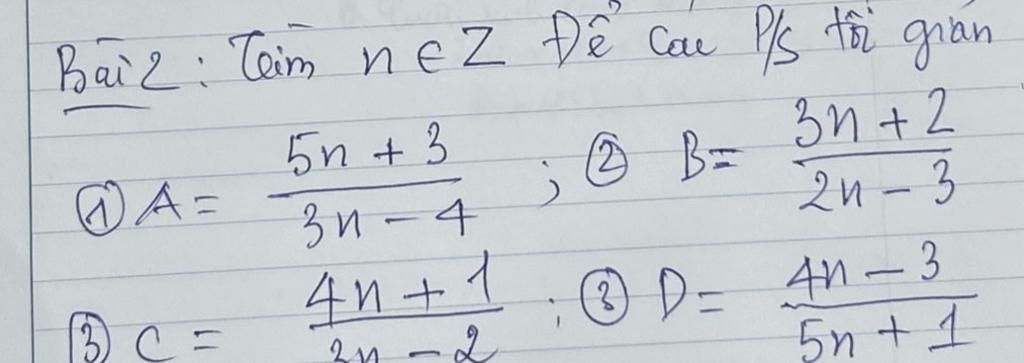 Bài 2: Tìm n ∈ Z Để các P/s tối giản
① A = (5n + 3)/(3n - 4) ; ② B = (3n + 2)/(2n - 3)
③ C = (4n + 1)/(3n - 2) ; ③ D = (4n - 3)/(5n + 1)